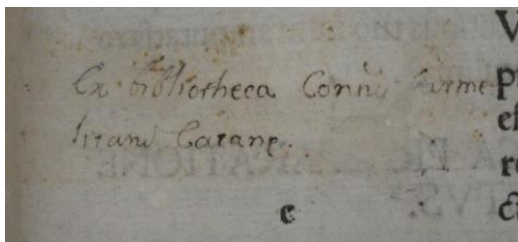 Ex bibliotheca Conuu Carme-
litani Catanę.
c
V
p
eſ
r
&